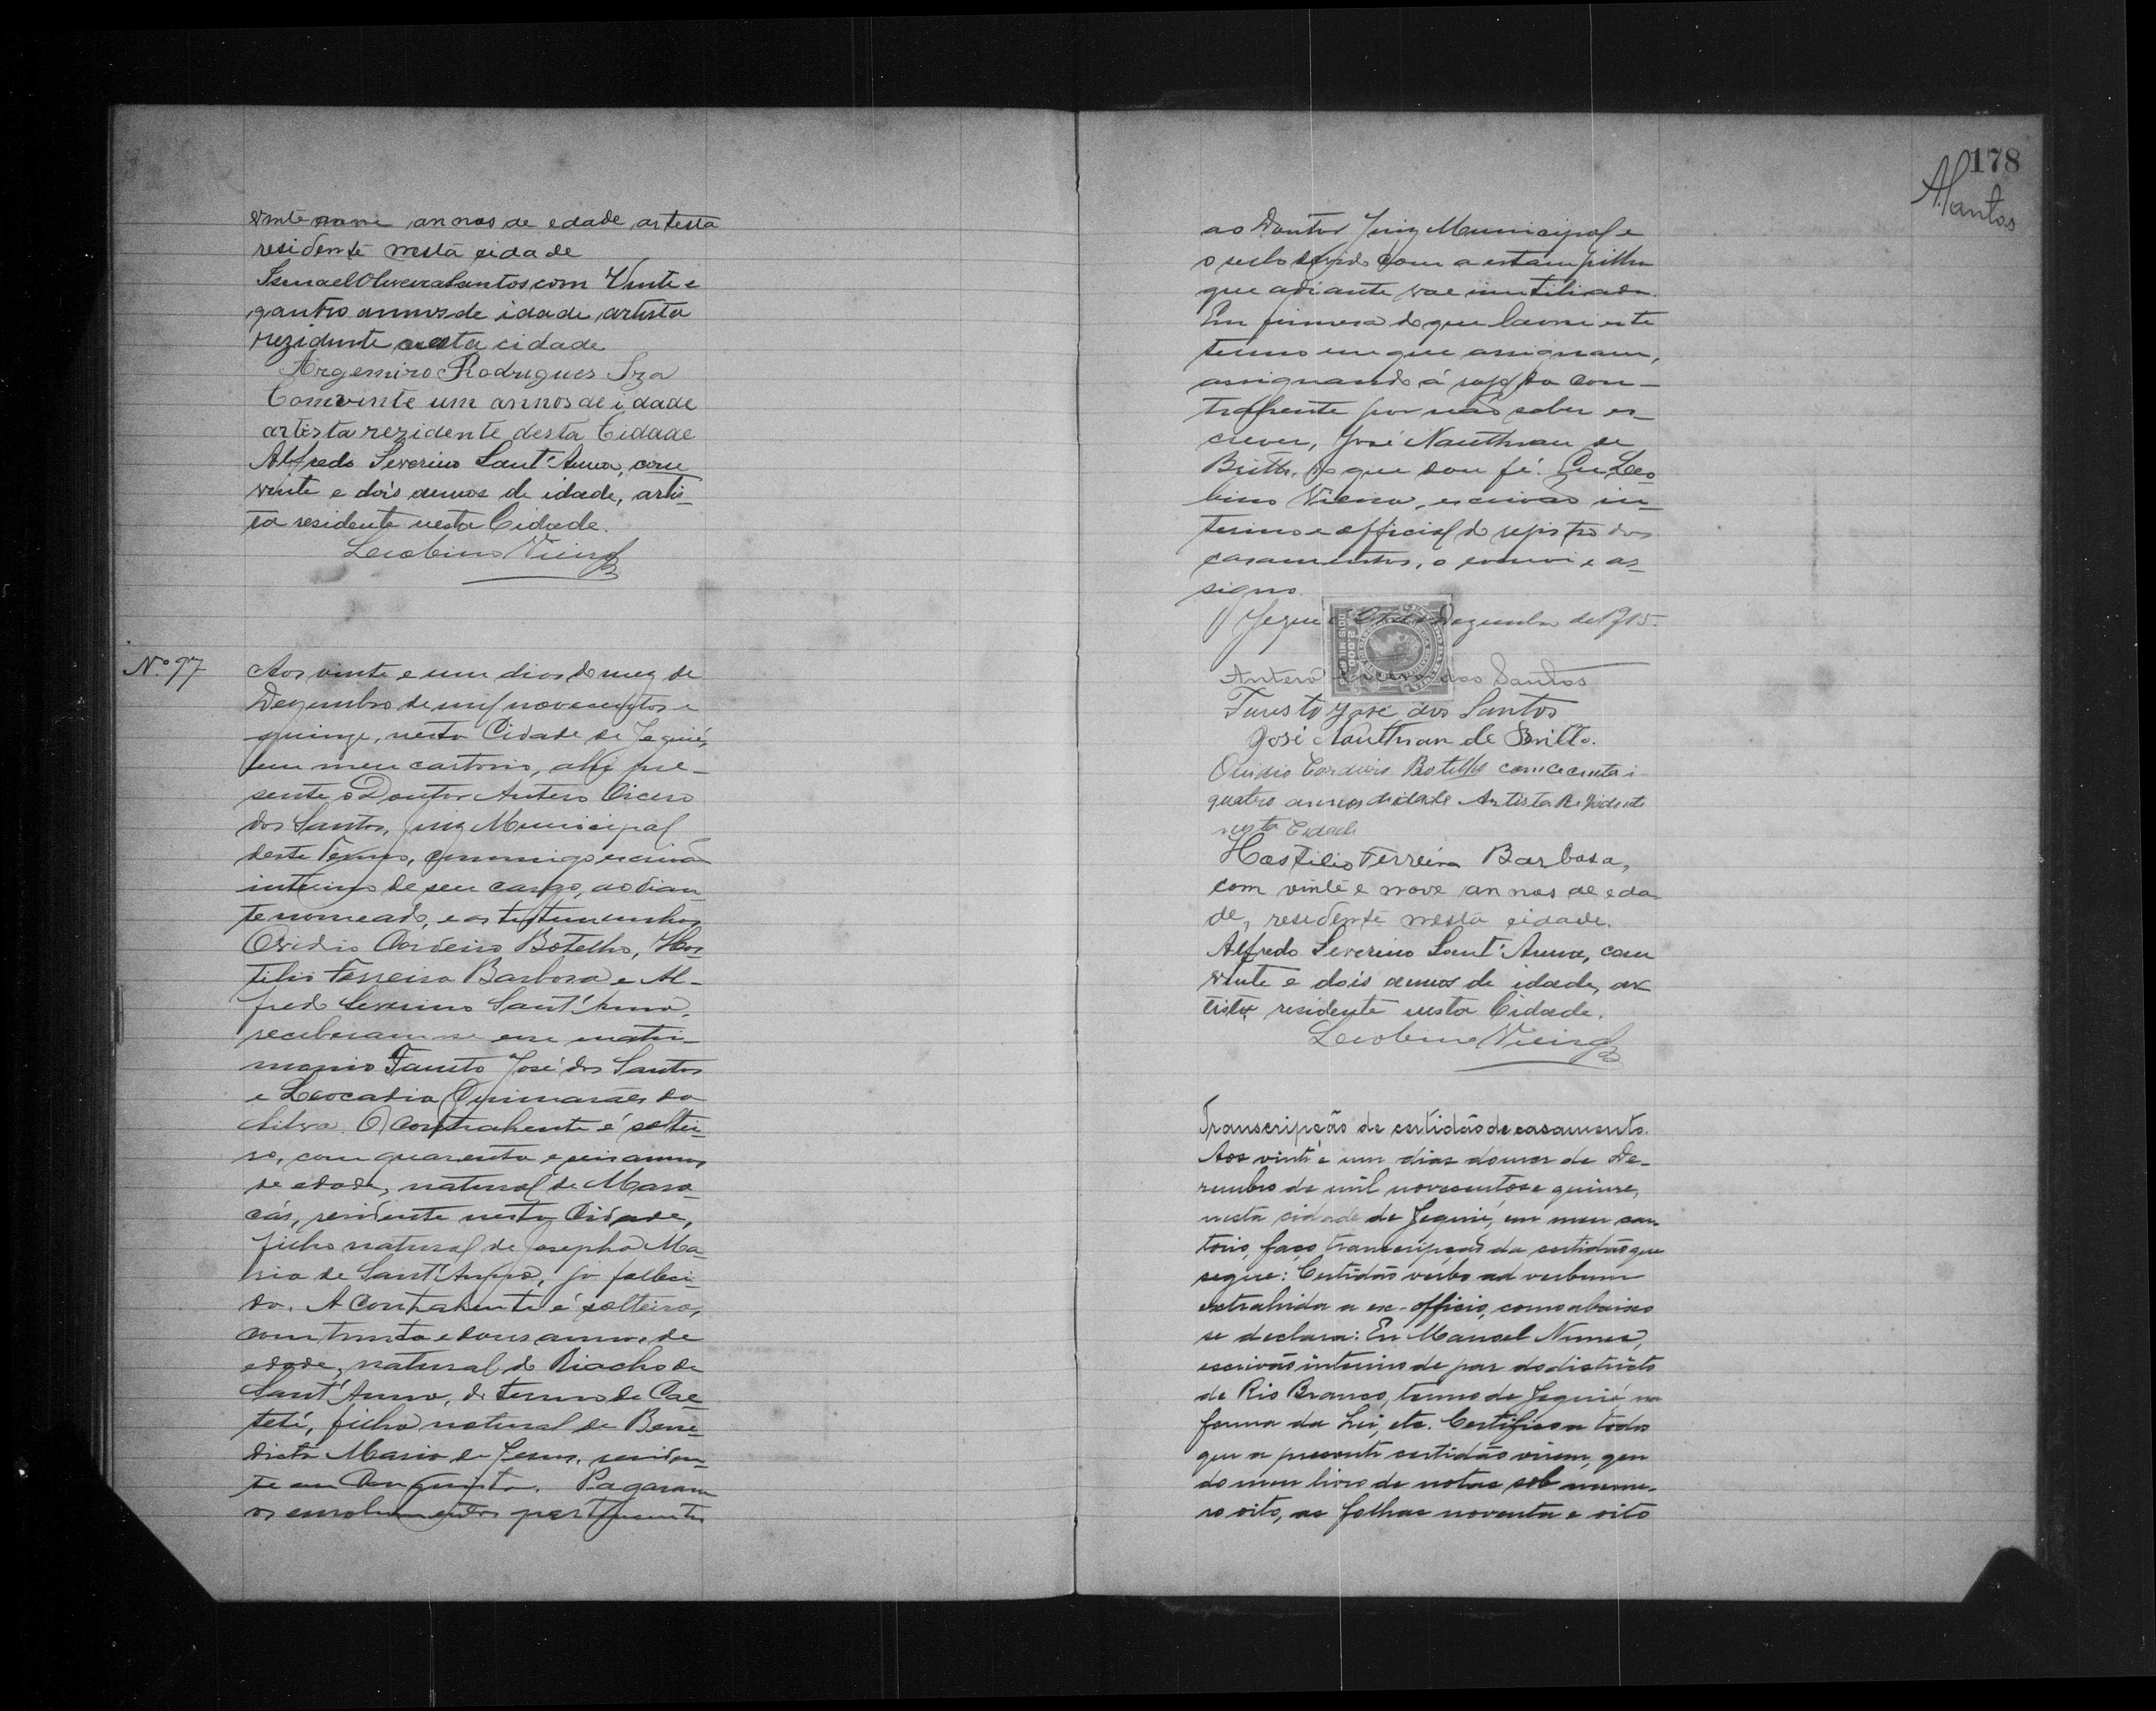 vinte nove annos de edade artista
residente nesta cidade
Ismael Oliveira Santos com Vinte e
quatro annos de idade artista
rezidente nesta cidade
Argemiro Rodrigues Sza
Com vinte um annos de idade
artista rezidente desta Cidade
Alfredo Severino Sant'Anna, com
vinte e dois annos de idade, artis-
ta residente nesta Cidade.
Leobino Vieira
Nº 97
Aos vinte e um dias do mez de
Dezembro de mil novecentos e
quinze, nesta Cidade de Jequié,
em meu cartorio, ahi pre-
sente o Doutor Antero Cicero
dos Santos, Juiz Municipal
deste Termo, commigo escrivão
interino de seu cargo, ao dian-
te nomeado, e as testemunhas
Ovidio Cordeiro Botelho, Hos-
tilio Ferreira Barbosa e Al-
fredo Severino Sant'Anna,
receberam-se em matri-
monio Fausto José dos Santos
e Leocadia Guimarães da
Silva. O contrahente é soltei-
ro, com quarenta e seis annos
de edade, natural de Mara-
cás, residente nesta Cidade,
filho natural de Josepha Ma-
ria de Sant'Anna, já falleci-
da. A contrahente é solteira,
com trinta e dous annos de
edade, natural do Riacho de
Sant'Anna, do Termo de Cae-
teté, filha natural de Bene-
dicta Maria de Jesus, residen-
te em Conquista. Pagaram
os emolumentos pertencentes
178
ASantos
ao Doutor Juiz Municipal e
o sello devido com a estampilha
que adiante vae inutilisada.
Em firmesa do que lavrei este
termo em que assignam,
assignando á rogo da con-
trahente por não saber es-
crever, José Nauthman de
Britto, do que dou fé. Eu Leo-
bino Vieira, escrivão in-
terino e official do registro dos
casamentos, o escrevi e as-
signo.
Jequié Dezembro de 1915.
DOIS MIL RÉIS
Antero Cicero dos Santos
Fausto José dos Santos
José Nauthman de Britto.
Ovidio Cordeiro Botelho com
quatro annos de idade Artista Rezidente
nesta Cidade
Hostilio Ferreira Barbosa,
com vinte e nove annos de eda
de, residente nesta cidade.
Alfredo Severino Sant'Anna, com
vinte e dois annos de idade, ar
tista residente nesta Cidade.
Leobino Vieira
Transcripção de certidão de casamento.
Aos vinte e um dias do mez de De-
zembro de mil novecentos e quinze,
nesta cidade de Jequié, em meu car-
torio, faço transcripção da certidão que
segue: Certidão verbo ad verbum
extrahida a ex-officio, como abaixo
se declara: Eu Manoel Nunes,
escrivão interino de paz do districto
de Rio Branco, termo de Jequié, na
forma da Lei, etc. Certifico a todos
que a presente certidão virem, que
do meu livro de notas sob nume-
ro oito, as folhas noventa e oito